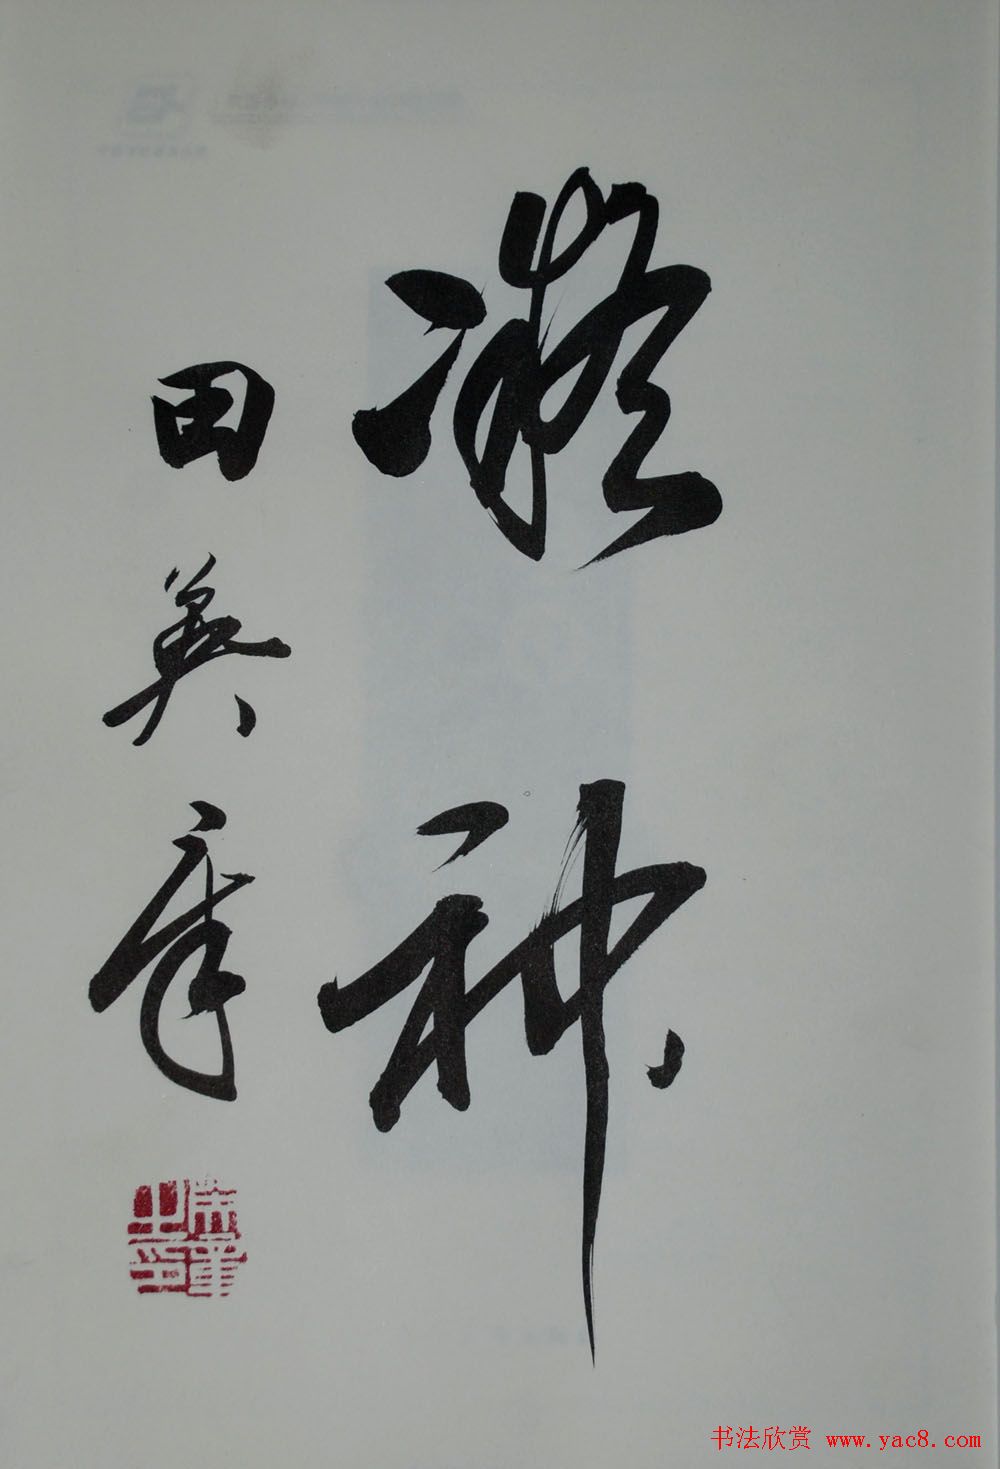 凝神
田英章
书法欣赏 www.yac8.com